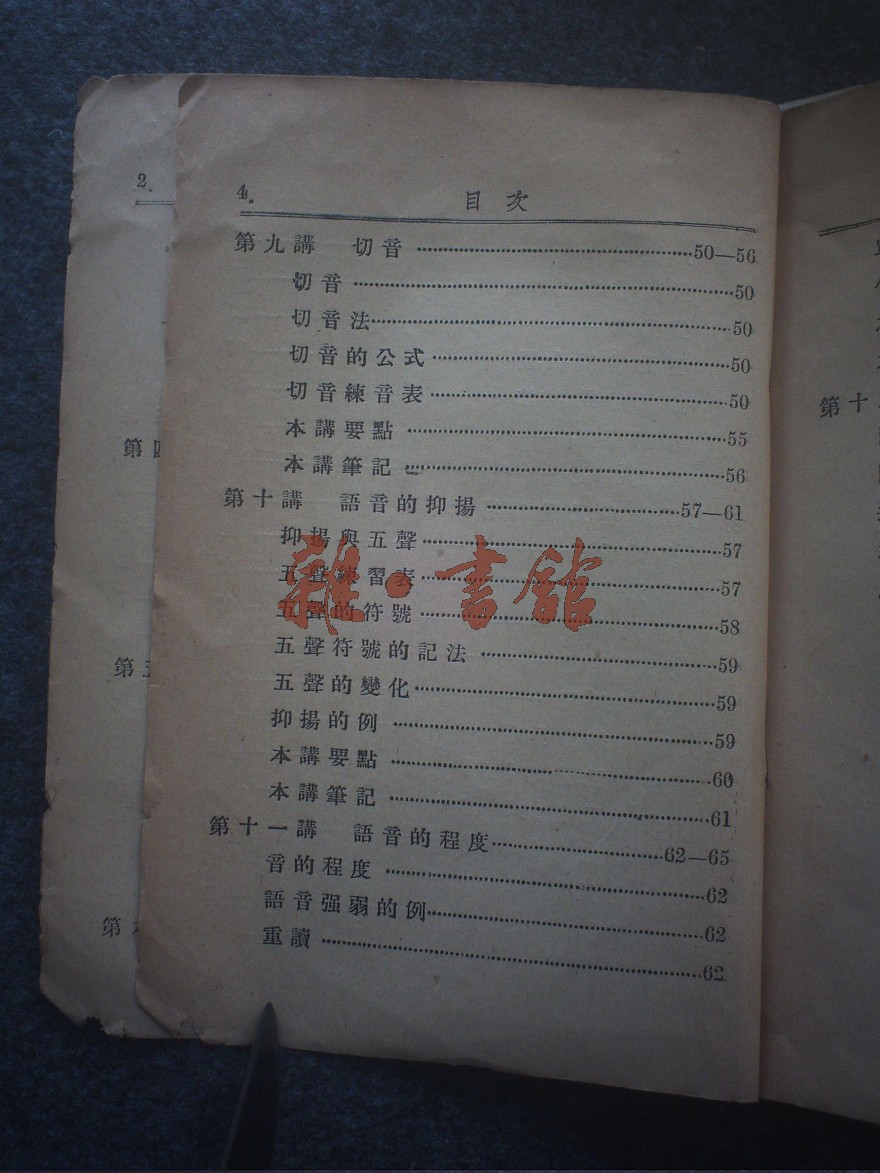 2.
4.
目次
第九講 切音 50—56
切音 50
切音法 50
切音的公式 50
切音練音表 50
本講要點 55
本講筆記 56
第十講 語音的抑揚 57—61
抑揚與五聲 57
五聲練習表 57
五聲的符號 58
五聲符號的記法 59
五聲的變化 59
抑揚的例 59
本講要點 60
本講筆記 61
第十一講 語音的程度 62—65
音的程度 62
語音强弱的例 62
重讀 62
雜·書館
第四
第五
第
第十